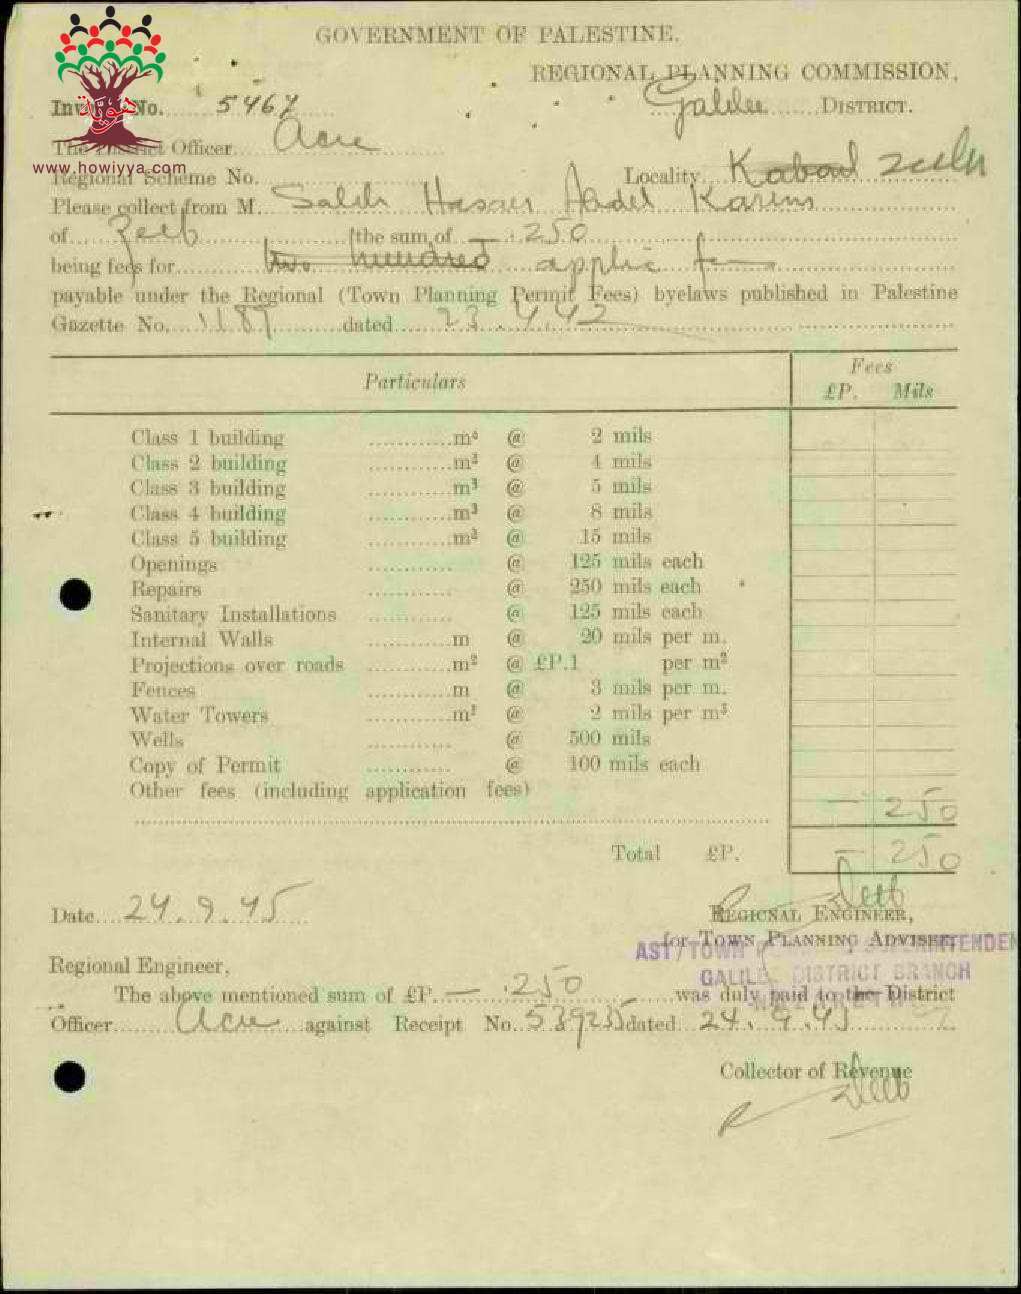 GOVERNMENT OF PALESTINE.
REGIONAL PLANNING COMMISSION,
Galilee DISTRICT.
هوية
www.howiyya.com
Invoice No. 5467
The District Officer Acre
Regional Scheme No. Locality Kaboul Zeeb
Please collect from M. Saleh Hassan Abdel Karim
of Zeeb (the sum of — .250
being fees for two hundred applic fees
payable under the Regional (Town Planning Permit Fees) byelaws published in Palestine
Gazette No. 1189 dated 23.4.42
Particulars Fees
£P. Mils
Class 1 building m³ @ 2 mils
Class 2 building m³ @ 4 mils
Class 3 building m³ @ 5 mils
Class 4 building m³ @ 8 mils
Class 5 building m³ @ 15 mils
Openings @ 125 mils each
Repairs @ 250 mils each
Sanitary Installations @ 125 mils each
Internal Walls m @ 20 mils per m.
Projections over roads m² @ £P.1 per m²
Fences m @ 3 mils per m.
Water Towers m³ @ 2 mils per m³
Wells @ 500 mils
Copy of Permit @ 100 mils each
Other fees (including application fees) — 250
Total £P. — 250
Date 24.9.45
REGIONAL ENGINEER,
for TOWN PLANNING ADVISER
GALILEE DISTRICT BRANCH
Regional Engineer,
The above mentioned sum of £P. — .250 was duly paid to the District
Officer Acre against Receipt No. 539235 dated 24.9.45
Collector of Revenue